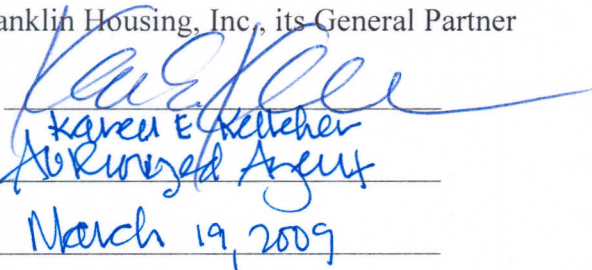 anklin Housing, Inc., its General Partner
Karen E Kelleher
Authorized Agent
March 19, 2009